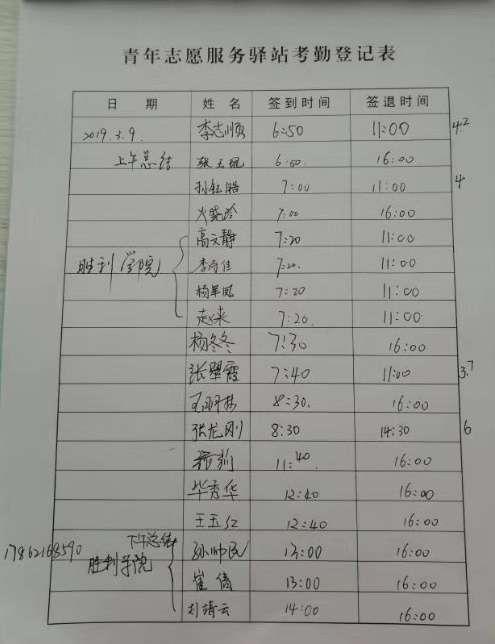 青年志愿服务驿站考勤登记表
日 期 姓 名 签到时间 签退时间
2019.3.9. 李志顺 6:50 11:00 4.2
上午总结 6:50. 16:00
7:00 11:00 4
7:00 16:00
高文静 7:20 11:00
胜利学院 7:20. 11:00
7:20 11:00
7:20. 11:00
杨冬冬 7:30 16:00
张翠霞 7:40 11:00 3.7
8:30. 16:00
张龙刚 8:30 14:30 6
11:40. 16:00
毕秀华 12:40 16:00
王玉红 12:40 16:00
下午总结
17862168590 胜利学院 孙帅民 13:00 16:00
崔倩 13:00 16:00
刘靖云 14:00 16:00